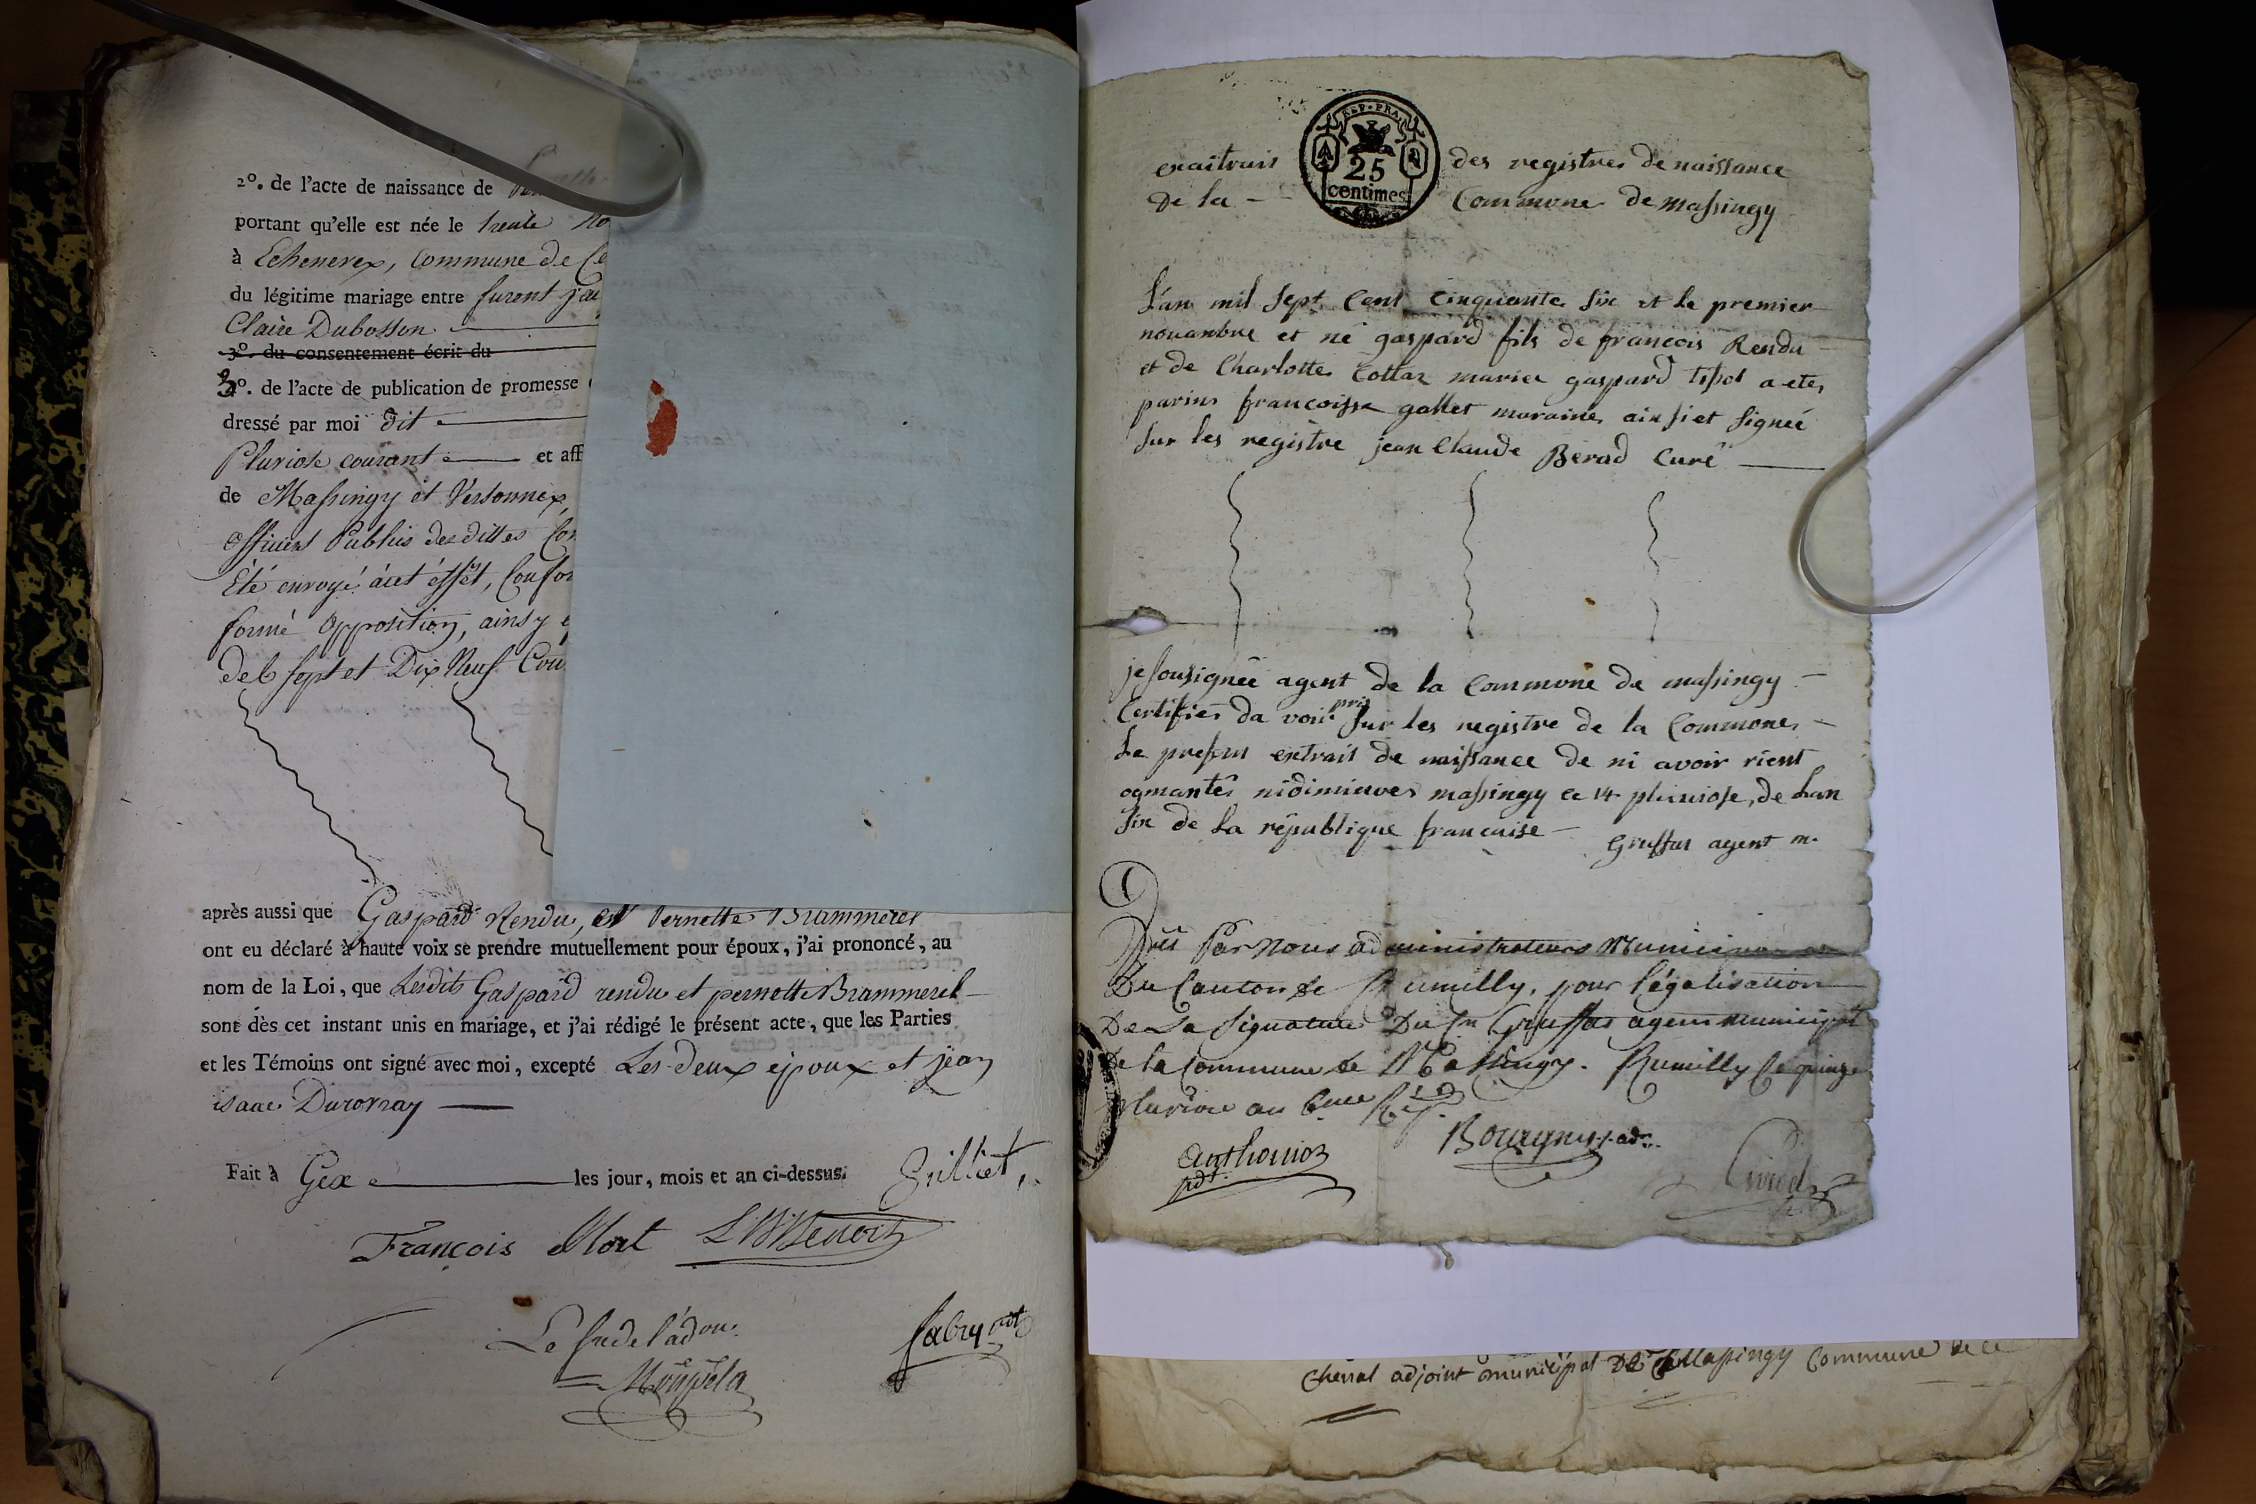 2º. de l'acte de naissance de
portant qu'elle est née le trente
à Echenevex, Commune de
du légitime mariage entre furent
Claire Dubosson
3º. du consentement écrit du
3º. de l'acte de publication de promesse
dressé par moi dit
Pluviose courant et aff
de Massingy et Versonnex,
Officiers Publics desdittes
Eté envoyé àcet éffêt,
formé Opposition, ainsy
des sept et Dix Neuf
après aussi que Gaspard Rendu, et Pernette Brammerel
ont eu déclaré à haute voix se prendre mutuellement pour époux, j'ai prononcé, au
nom de la Loi, que Lesdits Gaspard rendu et pernette Brammerel
sont dès cet instant unis en mariage, et j'ai rédigé le présent acte, que les Parties
et les Témoins ont signé avec moi, excepté Les deux époux et jean
isaac Durovray
Fait à Gex les jour, mois et an ci-dessus.
François Mort
fabry
REP. FRA.
25
centimes
exaitrais des registres de naissance
De la - Commune de massingy
L'an mil sept Cent cinquante six et le premier
nouanbre et né gaspard fils de francois Rendu
et de Charlotte Collaz mariez gaspard tissot a etes
parins francoisse gallet maraine ainsi et signeé
sur les registre jean Claude Berad Curé
je sousignée agent de la Commune de massingy
Certifies da voir pris sur les registre de la Commones
Le presens extrait de naissance de ni avoir rient
ogmantês nidiminuver massingy ce 14 pluviose, de Lan
six de la république francaise
Gruffas agent m.
Vû Par Nous administrateurs Municipaux
Du Canton de Rumilly, pour légalisation
De La Signature Du Cn Gruffas agent municipal
De la Commune de Massingy. Rumilly le quinze
pluviose an 6me Rép.
Anthonioz
pdt.
Chenal adjoint municipal De Massingy Commune de ce